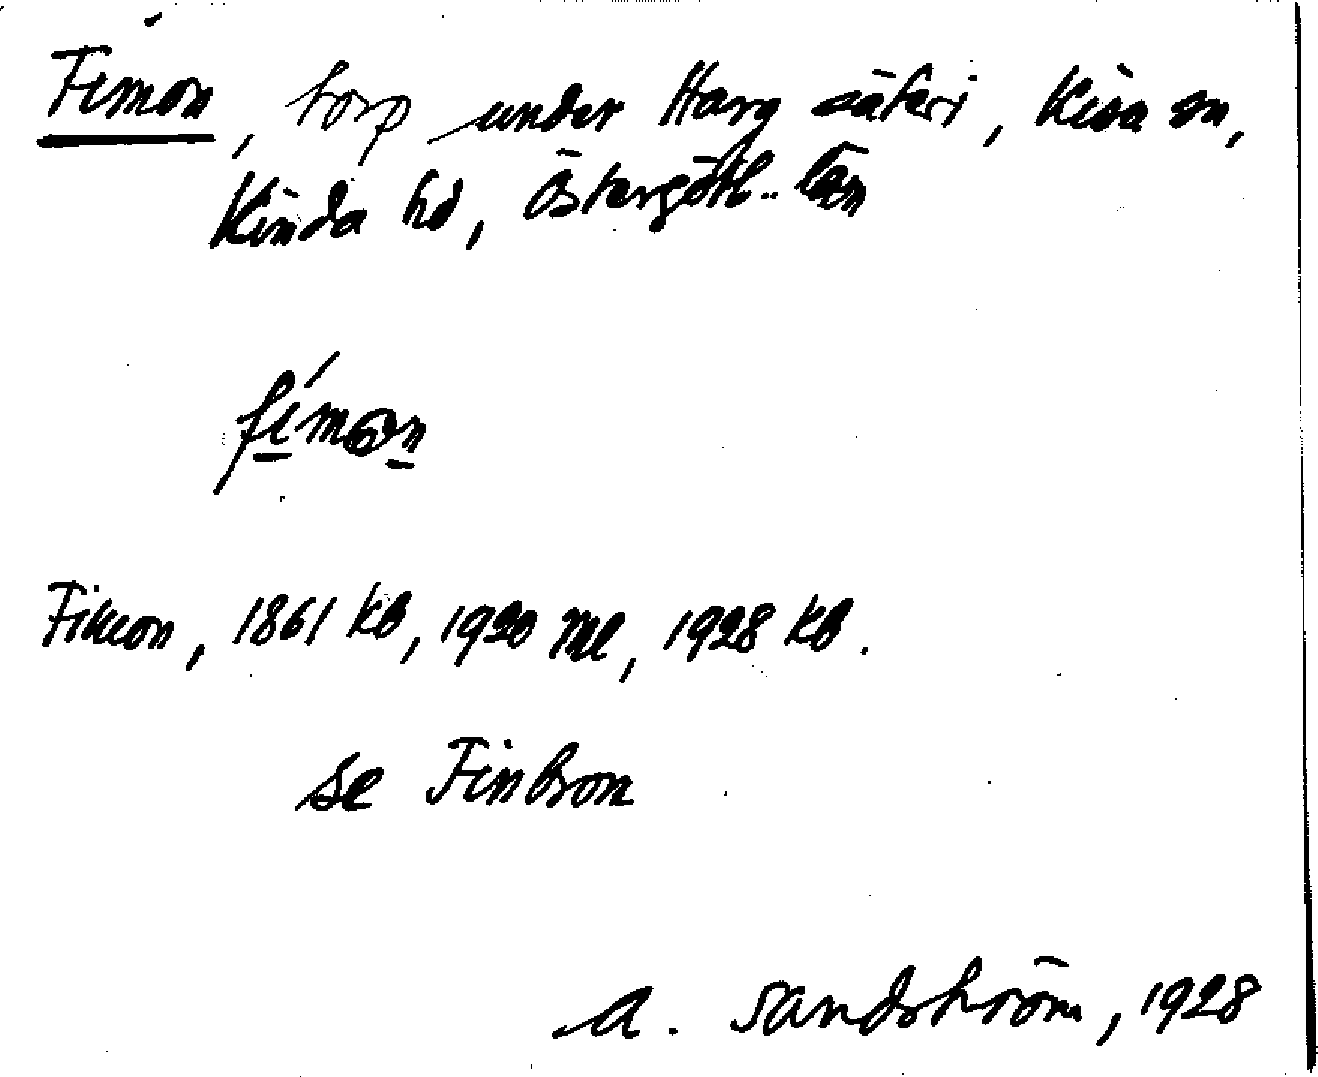 Fimon, torp under Harg säteri, Kisa sn,
Kinda hd, Östergötl. län
fi´mon
Fimon, 1861 kb, 1920 ml, 1928 kb.
se Finbron
A. Sandström, 1928